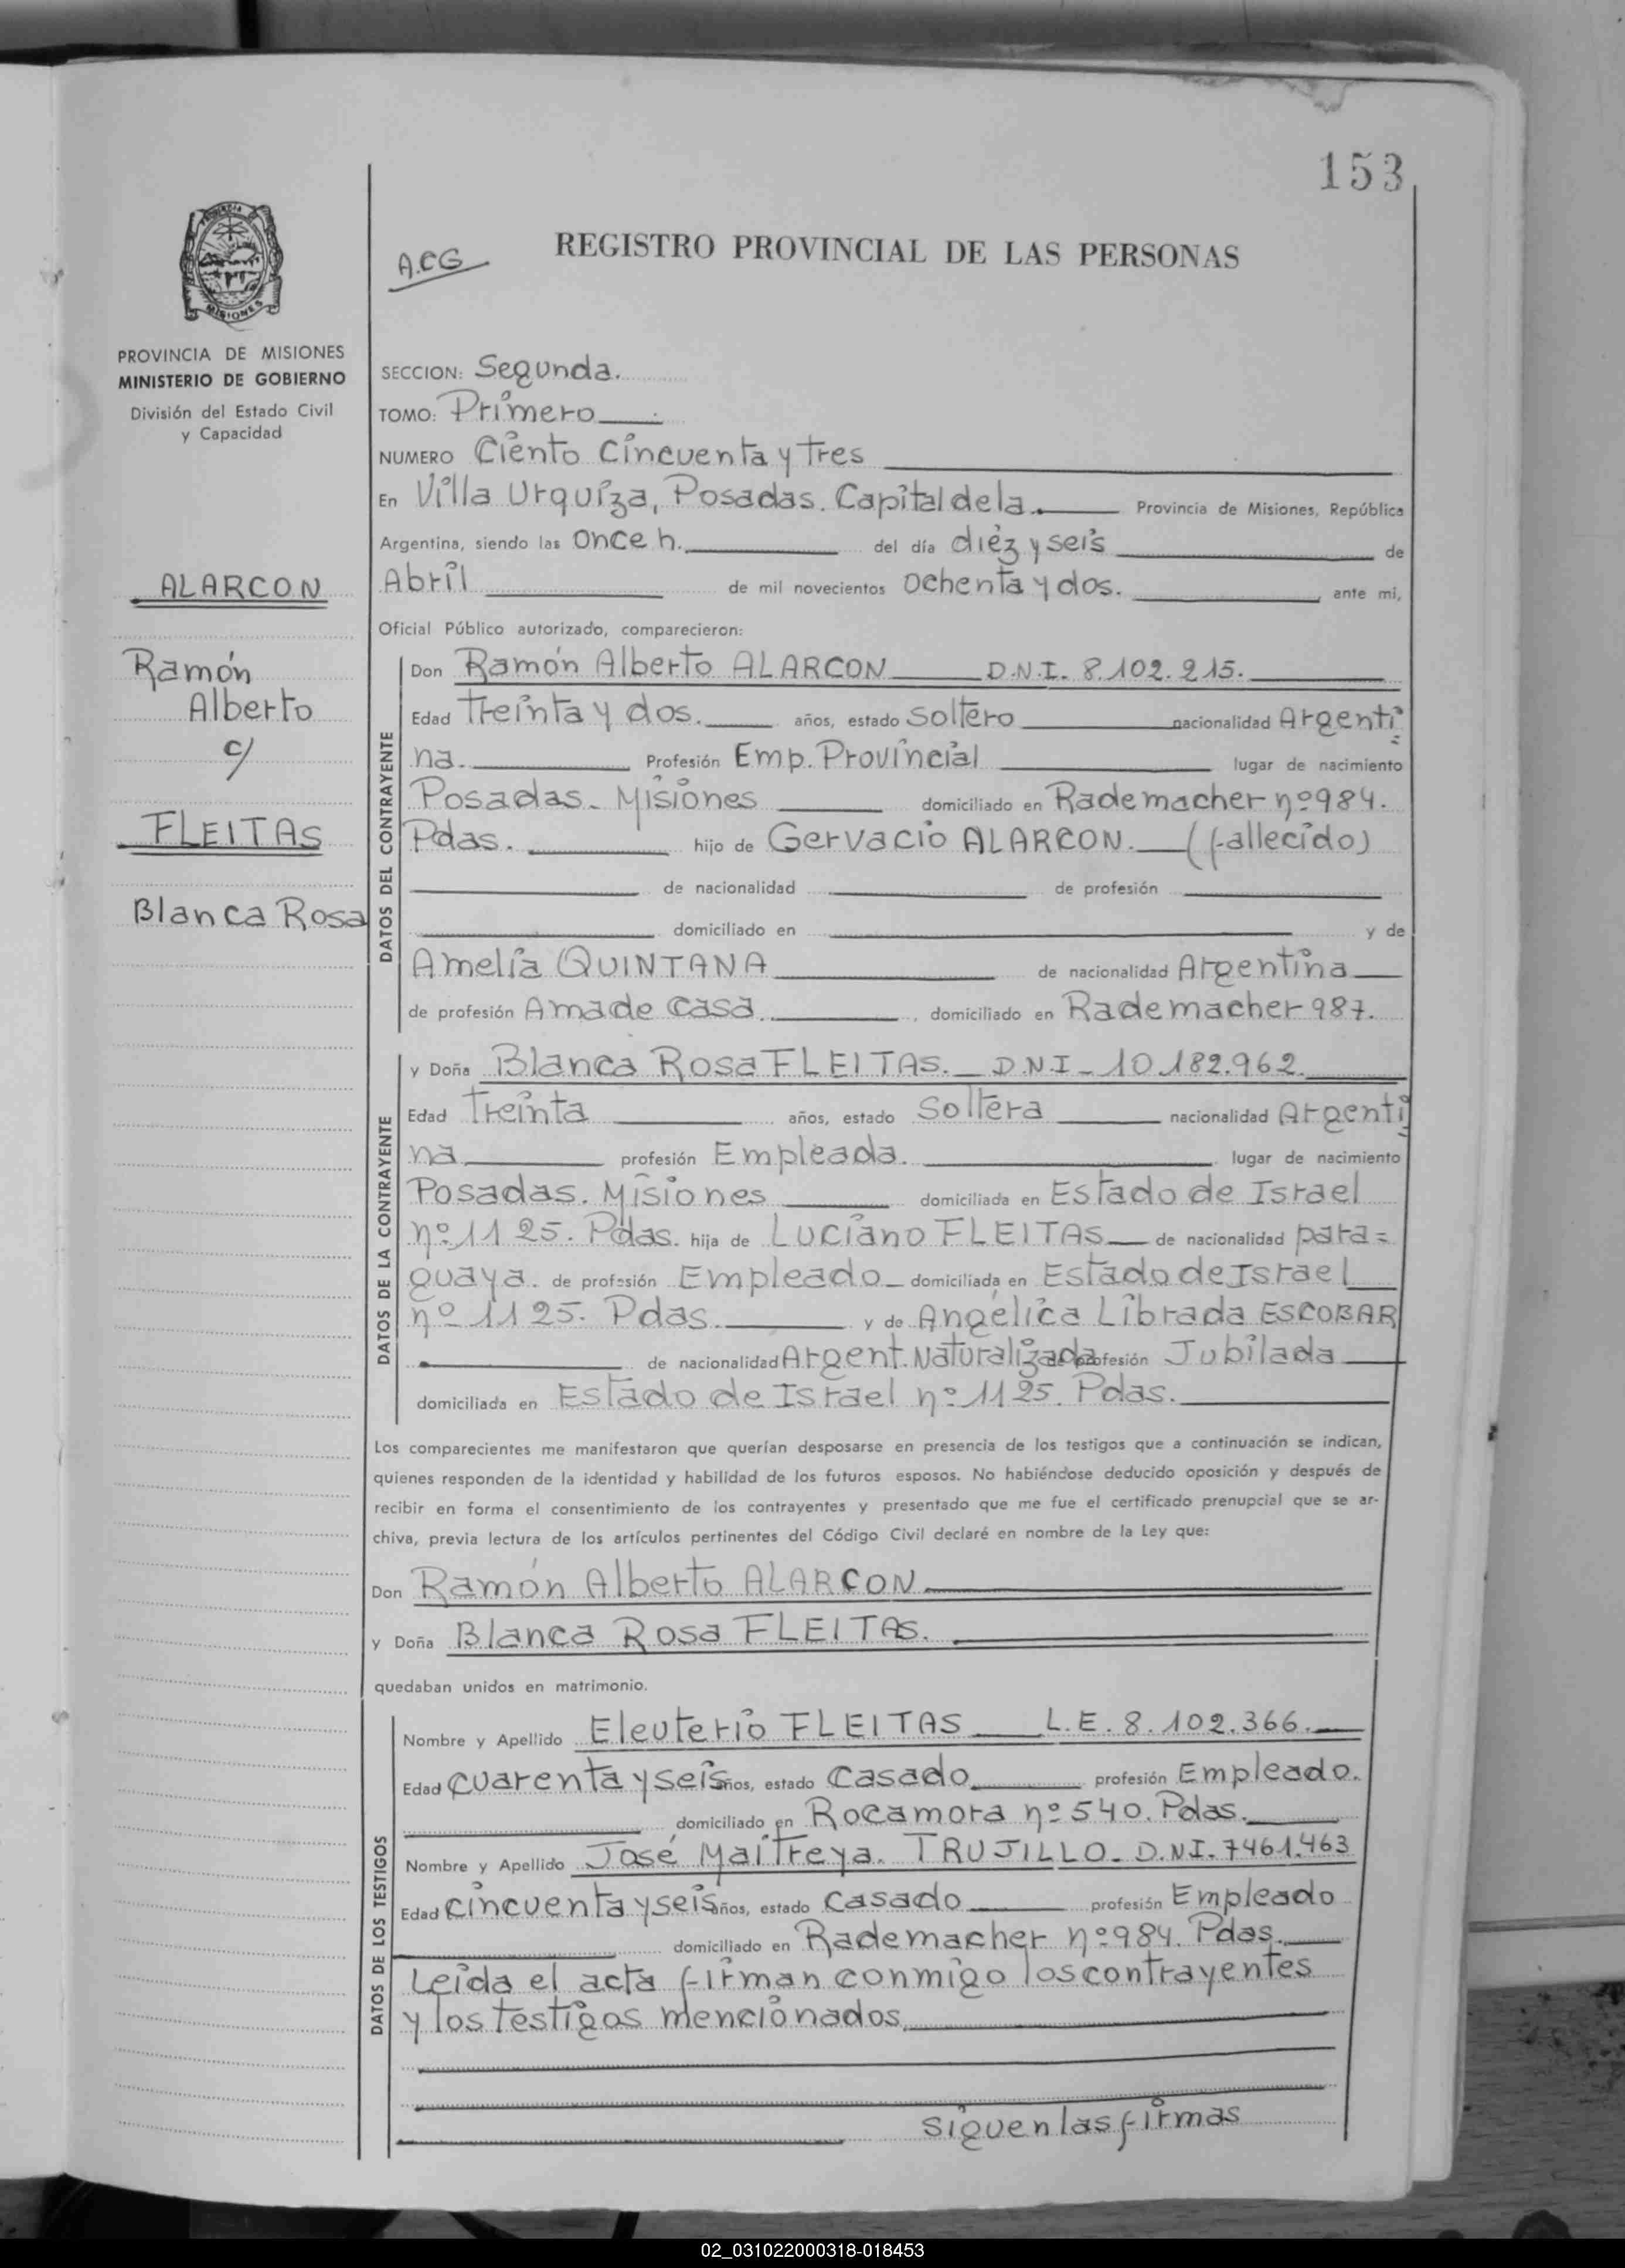 153
A.C.G
REGISTRO PROVINCIAL DE LAS PERSONAS
PROVINCIA DE MISIONES
MINISTERIO DE GOBIERNO
División del Estado Civil
y Capacidad
ALARCON
Ramón
Alberto
c/
FLEITAS
Blanca Rosa
SECCION: Segunda.
TOMO: Primero
NUMERO Ciento Cincuenta y tres
En Villa Urquiza, Posadas. Capital de la Provincia de Misiones, República
Argentina, siendo las once h. del día diéz y seis de
Abril de mil novecientos ochenta y dos. ante mi,
Oficial Público autorizado, comparecieron:
DATOS DEL CONTRAYENTE
Don Ramón Alberto ALARCON D.N.I. 8.102.215.
Edad treinta y dos. años, estado soltero nacionalidad Argenti=
na. Profesión Emp. Provincial lugar de nacimiento
Posadas - Misiones domiciliado en Rademacher nº 984.
Pdas. hijo de Gervacio ALARCON. (fallecido)
de nacionalidad de profesión
domiciliado en y de
Amelia QUINTANA de nacionalidad Argentina
de profesión Ama de casa. domiciliado en Rademacher 987.
DATOS DE LA CONTRAYENTE
y Doña Blanca Rosa FLEITAS. - D.N.I - 10.182.962.
Edad treinta años, estado soltera nacionalidad Argenti=
na profesión Empleada. lugar de nacimiento
Posadas. Misiones domiciliada en Estado de Israel
nº 1125. Pdas. hija de Luciano FLEITAS de nacionalidad para=
guaya. de profesión Empleado domiciliada en Estado de Israel
nº 1125. Pdas. y de Angélica Librada ESCOBAR
de nacionalidad Argent. Naturalizada de profesión Jubilada
domiciliada en Estado de Israel nº 1125. Pdas.
Los comparecientes me manifestaron que querían desposarse en presencia de los testigos que a continuación se indican,
quienes responden de la identidad y habilidad de los futuros esposos. No habiéndose deducido oposición y después de
recibir en forma el consentimiento de los contrayentes y presentado que me fue el certificado prenupcial que se ar-
chiva, previa lectura de los artículos pertinentes del Código Civil declaré en nombre de la Ley que:
Don Ramón Alberto ALARCON
y Doña Blanca Rosa FLEITAS.
quedaban unidos en matrimonio.
DATOS DE LOS TESTIGOS
Nombre y Apellido Eleuterio FLEITAS L.E. 8.102.366.
Edad cuarenta y seis años, estado casado profesión Empleado.
domiciliado en Rocamora nº 540. Pdas.
Nombre y Apellido José Maitreya. TRUJILLO - D.NI. 7461.463
Edad cincuenta y seis años, estado casado profesión Empleado
domiciliado en Rademacher nº 984. Pdas.
Leida el acta firman conmigo los contrayentes
y los testigos mencionados
siguen las firmas
02_031022000318-018453